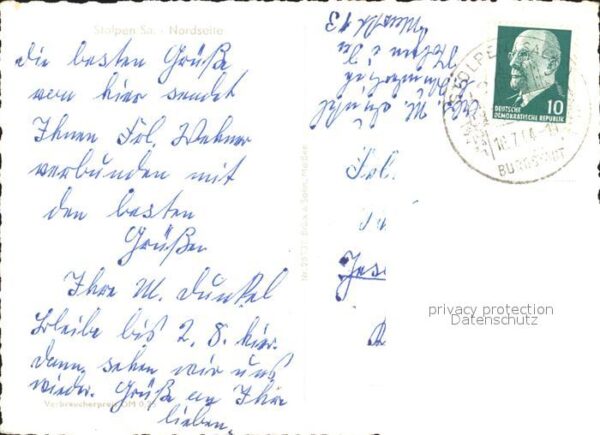 Stolpen Sa. - Nordseite
die besten Grüße
von hier sendet
Ihnen Frl. Wehner
verbunden mit
den besten
Grüßen
Ihre M. Dunkel
Bleibe bis 2. 8. hier.
dann sehen wir uns
wieder. Grüße an Ihre
lieben.
Verbraucherpreis DM 0,
Brück & Sohn, Meißen
Neustädt 13
Stolpen i Sa
M. Dunkel
STOLPEN SA
18.7.64
10
DEUTSCHE
DEMOKRATISCHE REPUBLIK
Frl.
privacy protection
Datenschutz